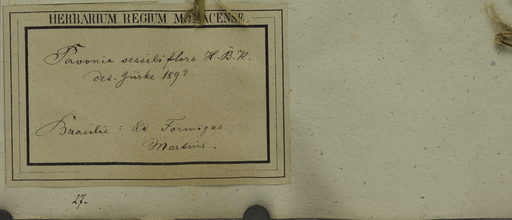 HERBARIUM REGIUM MONACENSE.
Pavonia sessiliflora H.B.K.
des. Gürke 1892.
Brasilia: ad Formigas
Martius.
27.